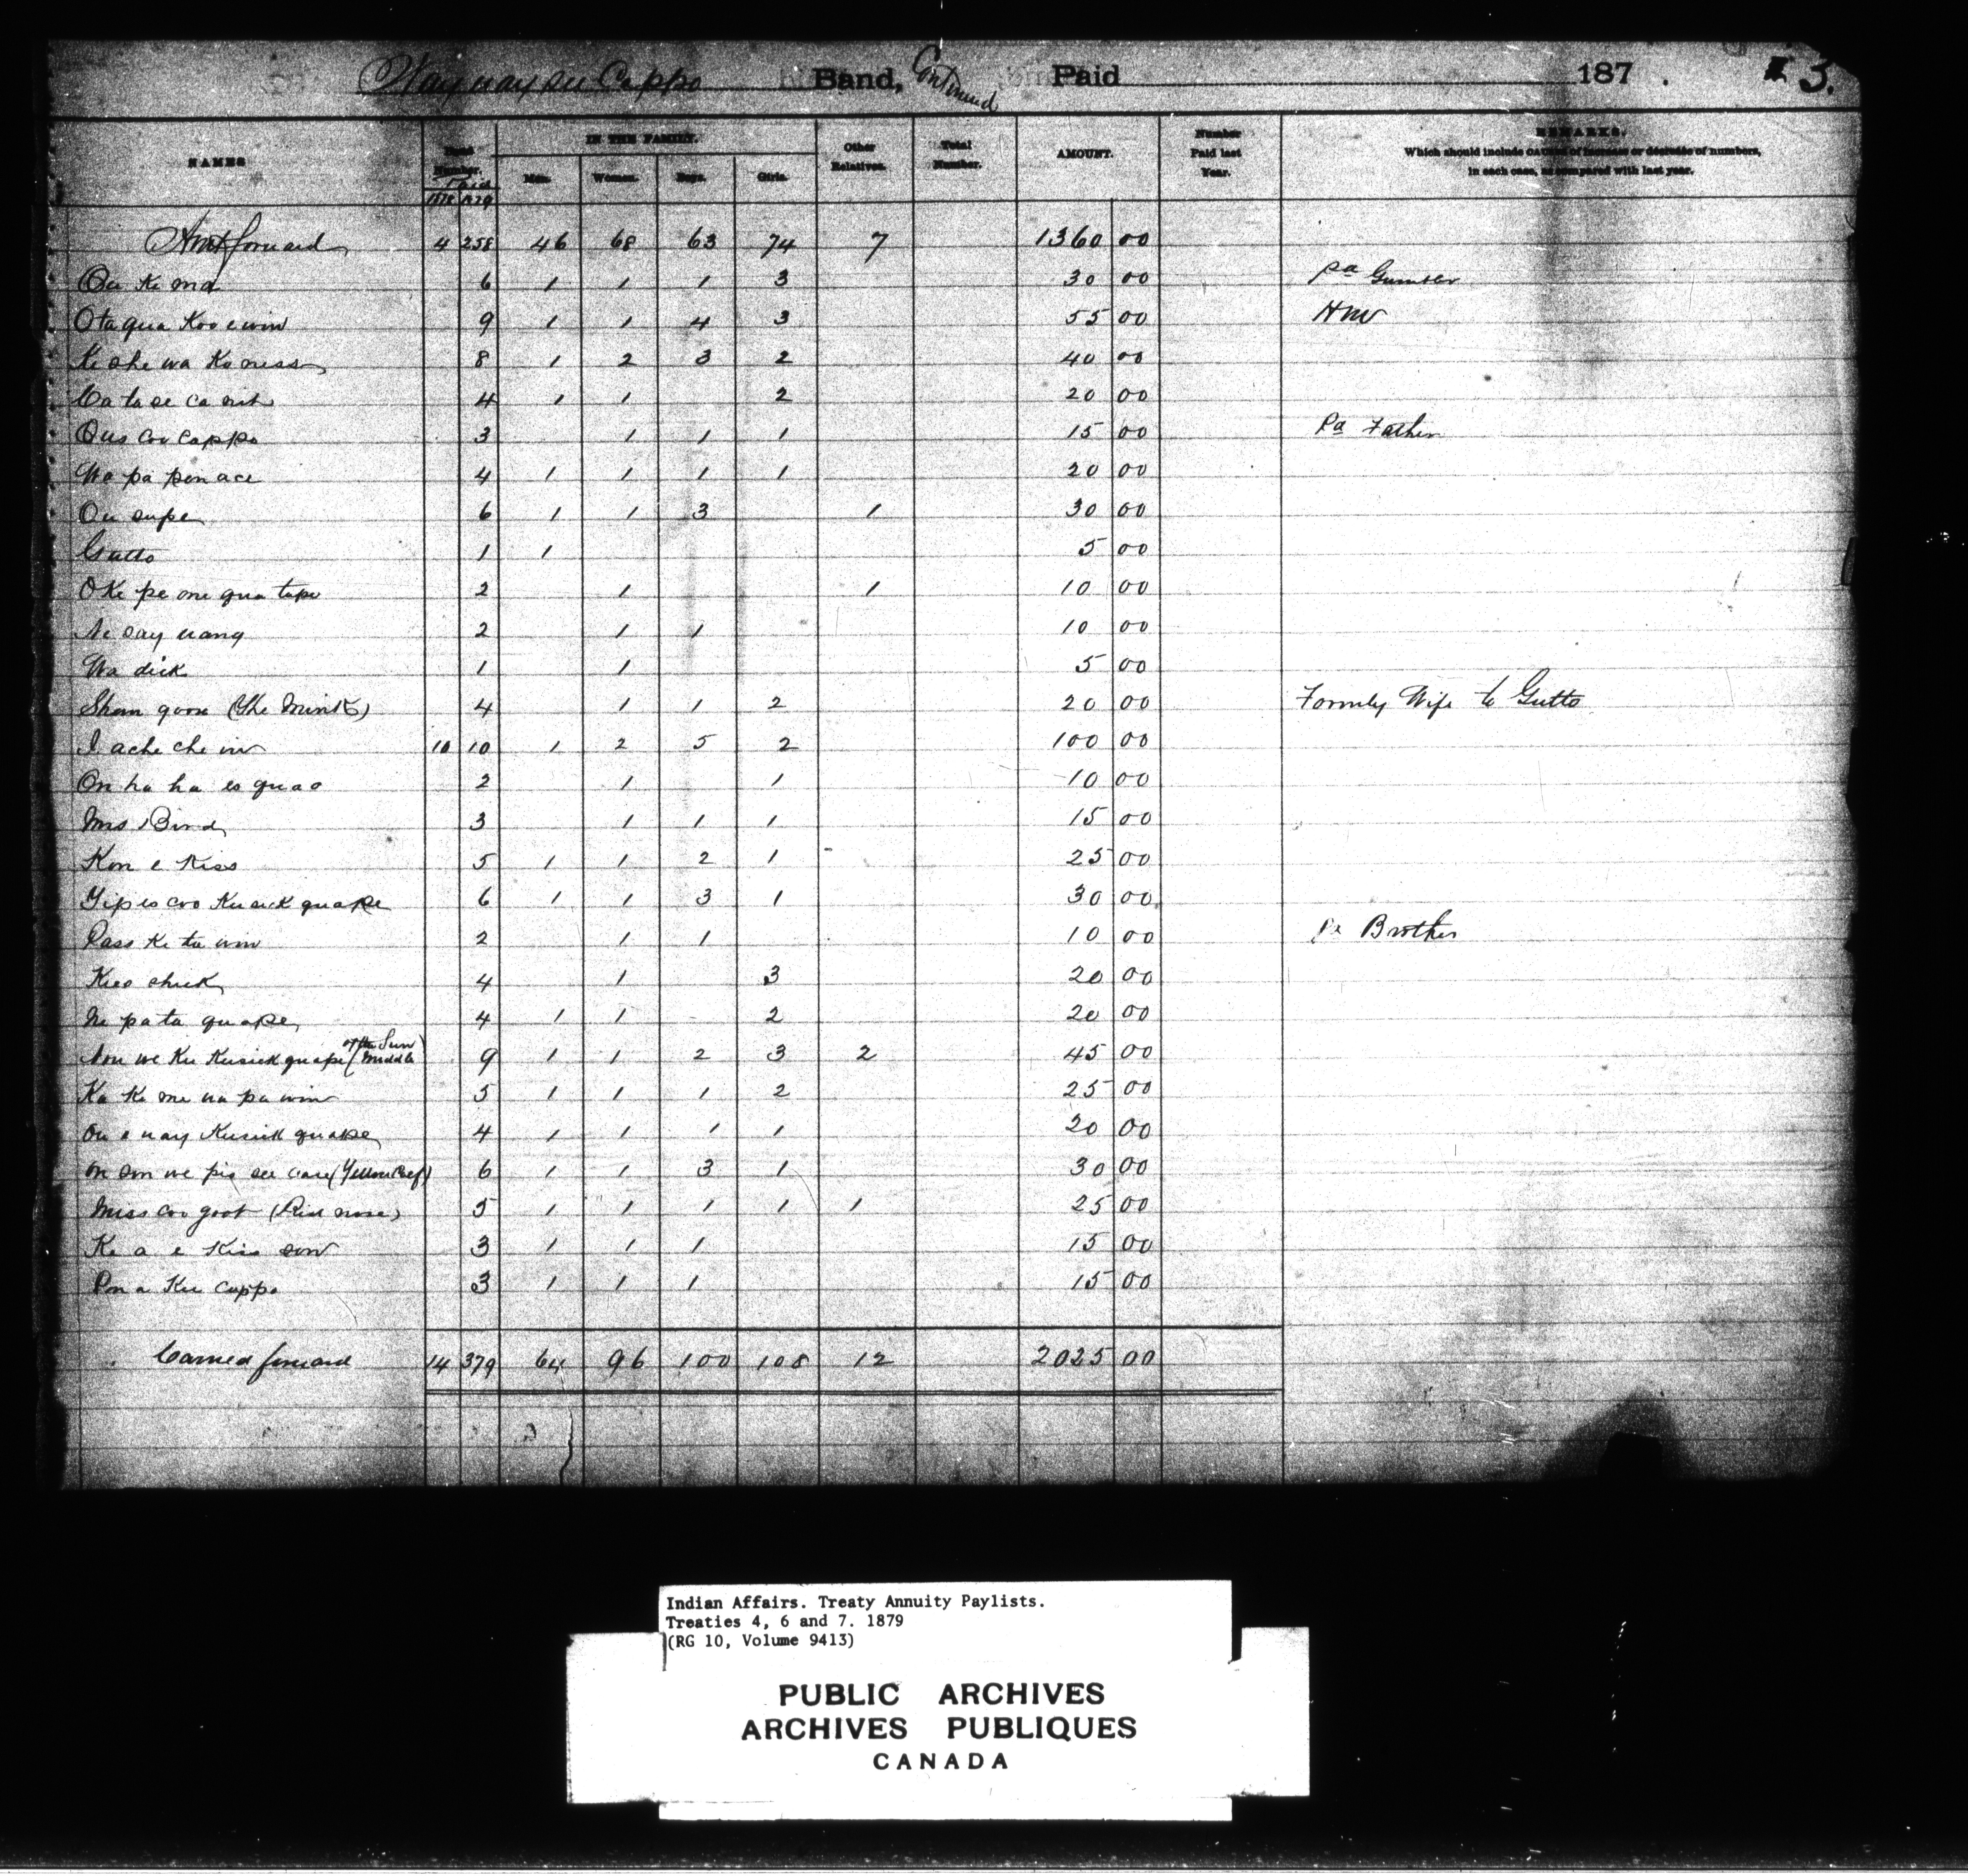 Way way see Cappo Band, Continued Paid 187 . 3.
NAMES Total Number. Paid 1878 1879 IN THE FAMILY. Men. Women. Boys. Girls. Other Relatives. Total Number. AMOUNT. Number Paid last Year. REMARKS. Which should include causes of increase or decrease of numbers, in each case, as compared with last year.
Amt forward 4 258 46 68 63 74 7 1360 00
Ou Ke ma 6 1 1 1 3 30 00 pa Gambler
Ota qua Koo e win 9 1 1 4 3 55 00
Ke she wa Ko ness 8 1 2 3 2 40 00
Ca ta se ca nish 4 1 1 2 20 00
Ous coo cappo 3 1 1 1 15 00 Pa Father
Wa pa pen ace 4 1 1 1 1 20 00
Ou supe 6 1 1 3 1 30 00
Gutto 1 1 5 00
O Ke pe one qua tape 2 1 1 10 00
Ne say nang 2 1 1 10 00
Wa dick 1 1 5 00
Sham goose (The Mink) 4 1 1 2 20 00 Formly Wife to Gutto
I ache che in 10 10 1 2 5 2 100 00
On ha ha es quao 2 1 1 10 00
Mrs Bird 3 1 1 1 15 00
Kon e Kiss 5 1 1 2 1 25 00
Yip es coo Kusick quape 6 1 1 3 1 30 00
Pass Ke ta win 2 1 1 10 00 Pa Brother
Kees chick 4 1 3 20 00
Ne pa ta quape 4 1 1 2 20 00
Nou we Ku Kusick quape (Middle of the Sun) 9 1 1 2 3 2 45 00
Ka Ke me na pa win 5 1 1 1 2 25 00
Ou e nay Kusick quape 4 1 1 1 1 20 00
On son we pis see case (Yellow Calf) 6 1 1 3 1 30 00
Miss coo goot (Red nose) 5 1 1 1 1 1 25 00
Ke a e Kiss son 3 1 1 1 15 00
Pon a Kee cappo 3 1 1 1 15 00
Carried forward 14 379 64 96 100 108 12 2025 00
Indian Affairs. Treaty Annuity Paylists.
Treaties 4, 6 and 7. 1879
(RG 10, Volume 9413)
PUBLIC ARCHIVES
ARCHIVES PUBLIQUES
CANADA